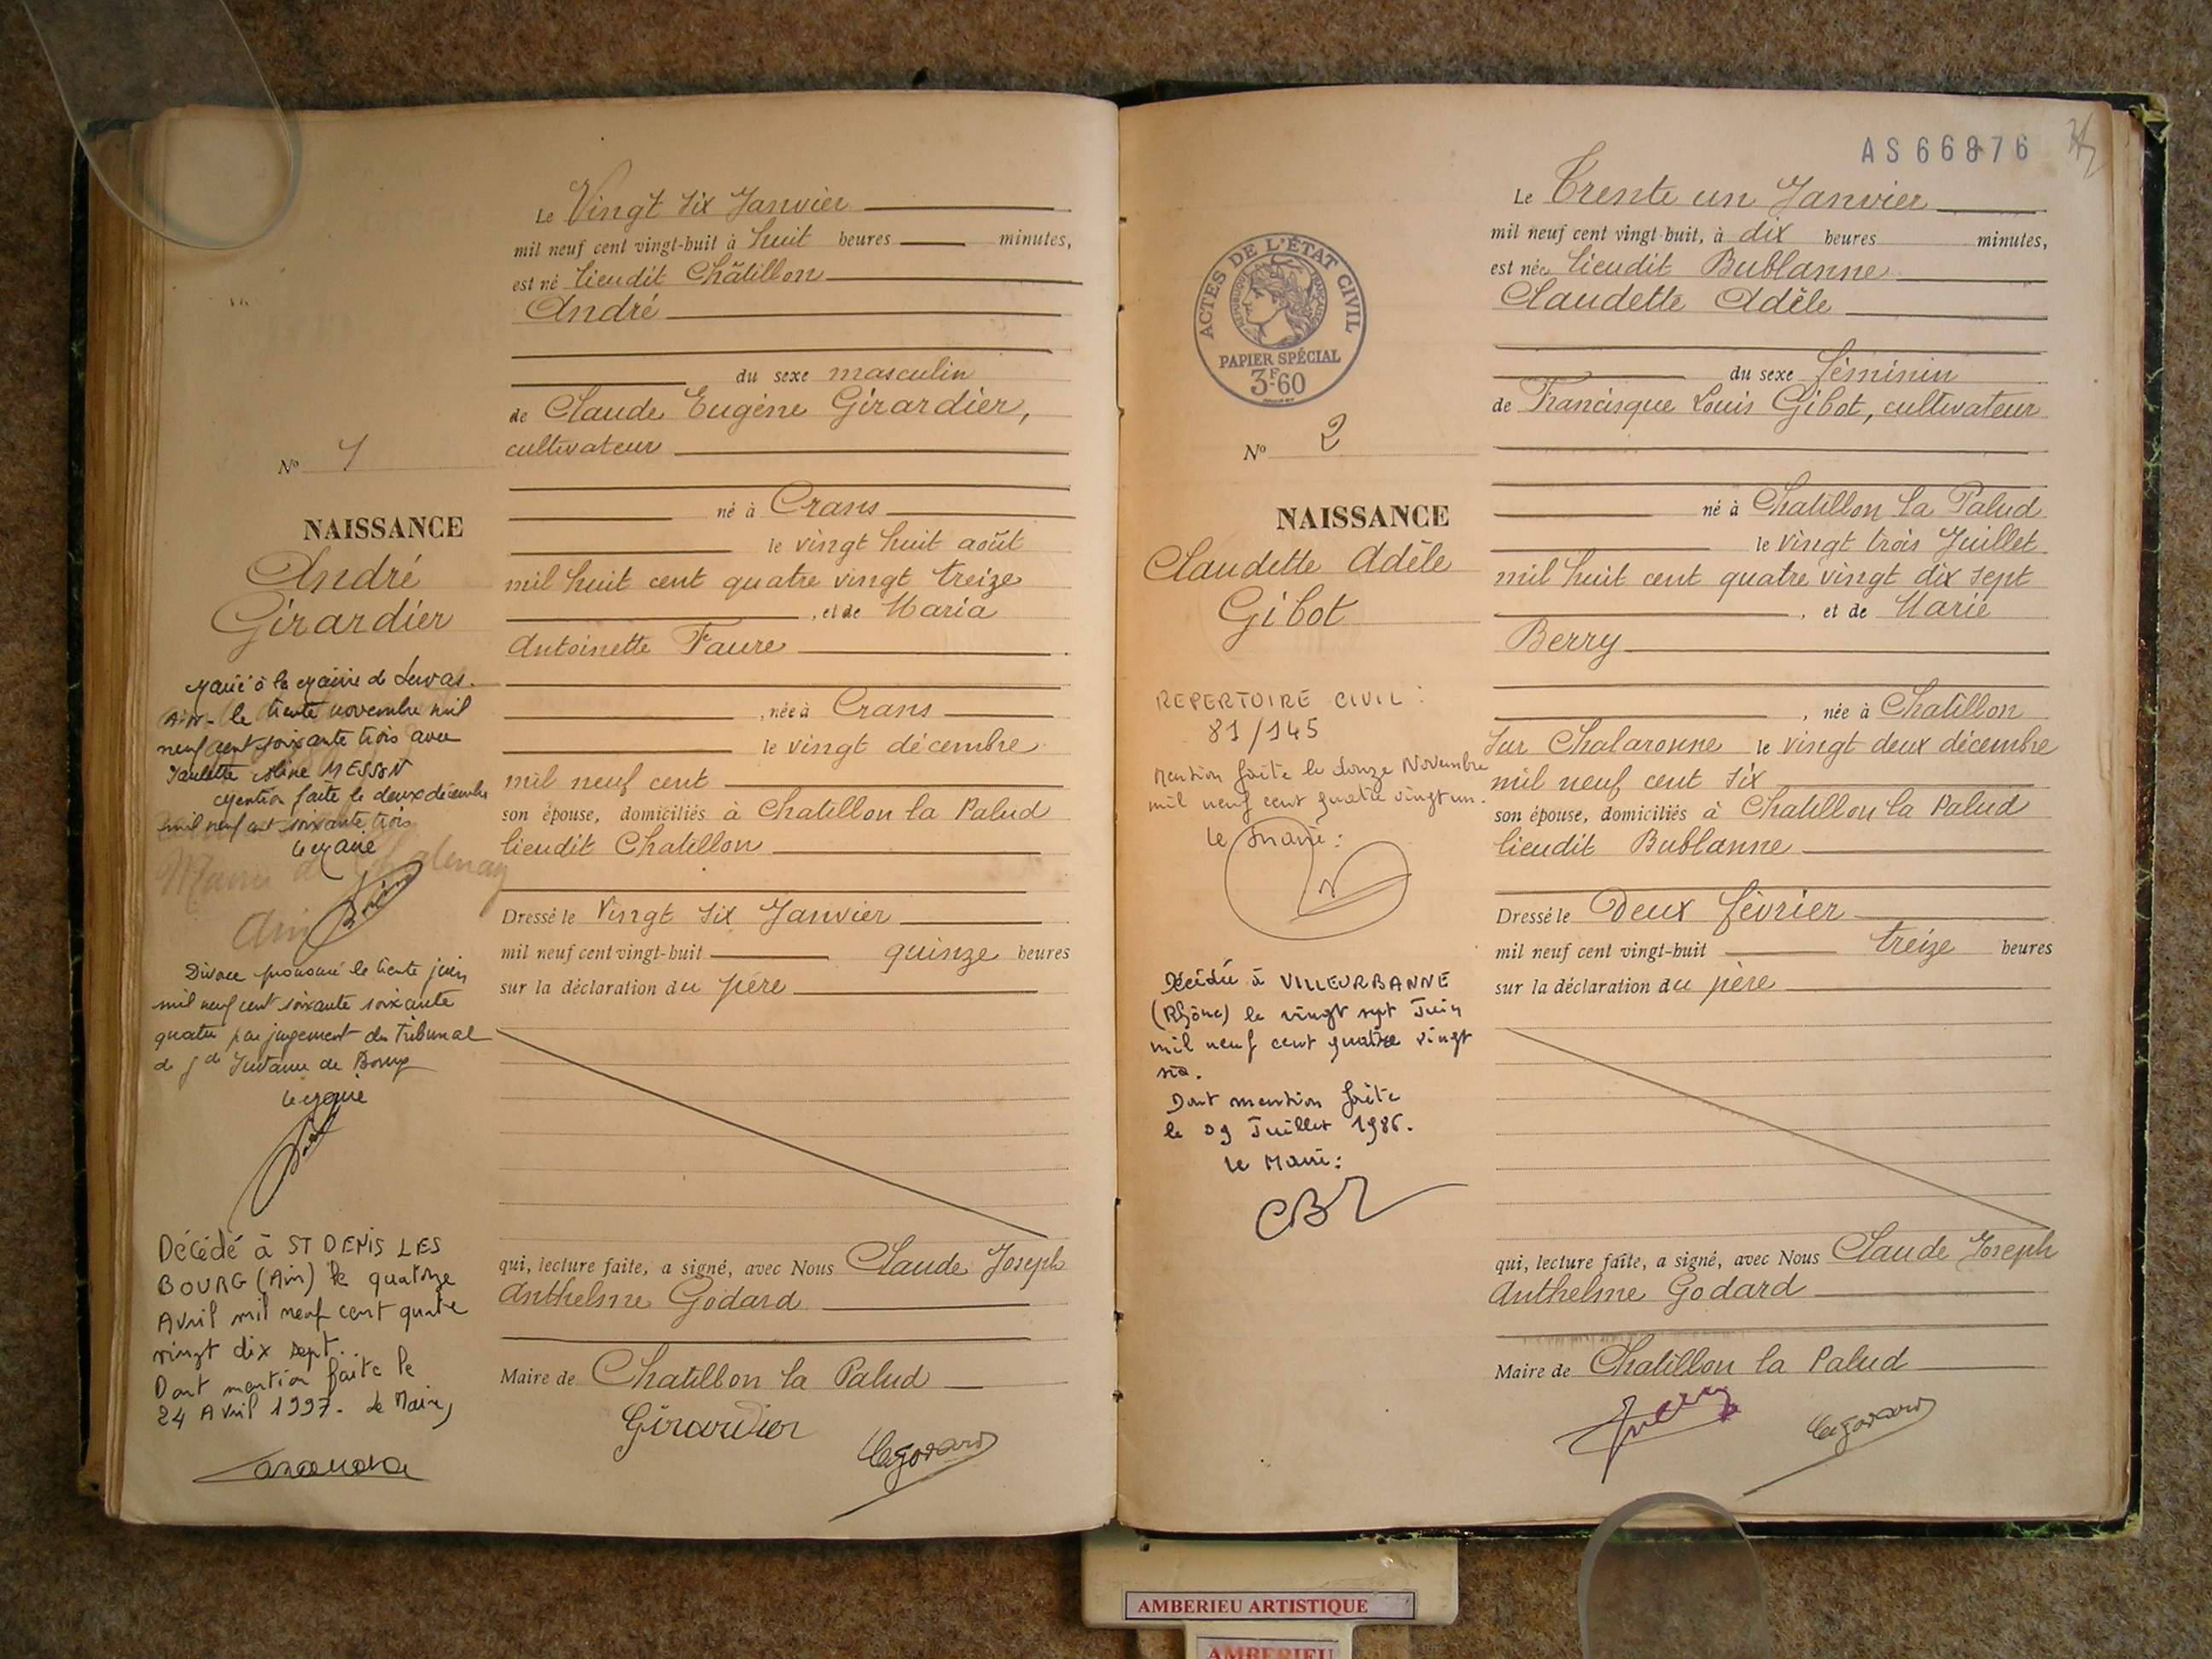 Le Vingt six Janvier
mil neuf cent vingt-huit à huit heures minutes,
est né lieudit Châtillon
André
du sexe masculin
de Claude Eugène Girardier,
cultivateur
né à Crans
le vingt huit août
mil huit cent quatre vingt treize
, et de Maria
Antoinette Faure
, née à Crans
le vingt décembre
mil neuf cent
son épouse, domiciliés à Chatillon la Palud
lieudit Chatillon
Dressé le Vingt six Janvier
mil neuf cent vingt-huit quinze heures
sur la déclaration du père
qui, lecture faite, a signé, avec Nous Claude Joseph
Anthelme Godard
Maire de Chatillon la Palud
Girardier
Nº 1
NAISSANCE
André
Girardier
Marié à la Mairie de
Ain - le trente novembre mil
neuf cent soixante trois avec
MESSON
Mention faite le deux décembre
mil neuf cent soixante trois
Le Maire
Ain
Divorce prononcé le trente juin
mil neuf cent soixante soixante
quatre par jugement du Tribunal
de gde Instance de Bourg
Le Maire
Décédé à ST DENIS LES
BOURG (Ain) le quatorze
Avril mil neuf cent quatre
vingt dix sept.
Dont mention faite le
24 Avril 1997. Le Maire,
AS66876
Le Trente un Janvier
mil neuf cent vingt-huit, à dix heures minutes,
est née lieudit Bublanne
Claudette Adèle
du sexe féminin
de Francisque Louis Gibot, cultivateur
né à Chatillon la Palud
le vingt trois Juillet
mil huit cent quatre vingt dix sept
, et de Marie
Berry
, née à Chatillon
sur Chalaronne le vingt deux décembre
mil neuf cent six
son épouse, domiciliés à Chatillon la Palud
lieudit Bublanne
Dressé le Deux février
mil neuf cent vingt-huit treize heures
sur la déclaration du père
qui, lecture faite, a signé, avec Nous Claude Joseph
Anthelme Godard
Maire de Chatillon la Palud
ACTES DE L'ÉTAT CIVIL
RÉPUBLIQUE FRANÇAISE
PAPIER SPÉCIAL
3F60
Nº 2
NAISSANCE
Claudette Adèle
Gibot
REPERTOIRE CIVIL :
81/145
Mention faite le douze Novembre
mil neuf cent quatre vingt un.
Le Maire :
Décédée à VILLEURBANNE
(Rhône) le vingt sept Juin
mil neuf cent quatre vingt
six.
Dont mention faite
le 09 Juillet 1986.
Le Maire :
AMBERIEU ARTISTIQUE
AMBERIEU